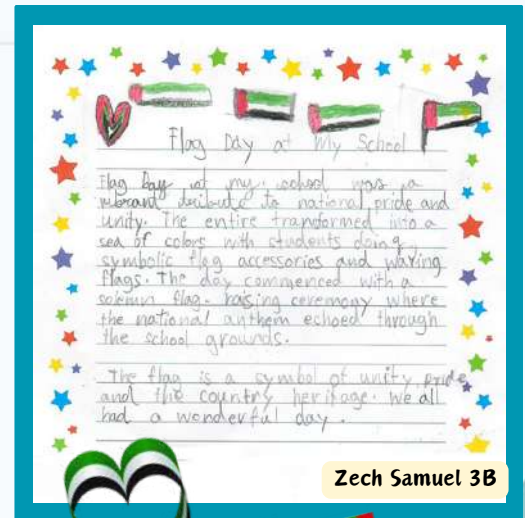 Flag Day at My School
Flag Day at my school was a
vibrant tribute to national pride and
unity. The entire tranformed into a
sea of colors with students doing
symbolic flag accessories and waving
flags. The day commenced with a
solemn flag-raising ceremony where
the national anthem echoed through
the school grounds.
The flag is a symbol of unity, pride
and the country heritage. We all
had a wonderful day.
Zech Samuel 3B